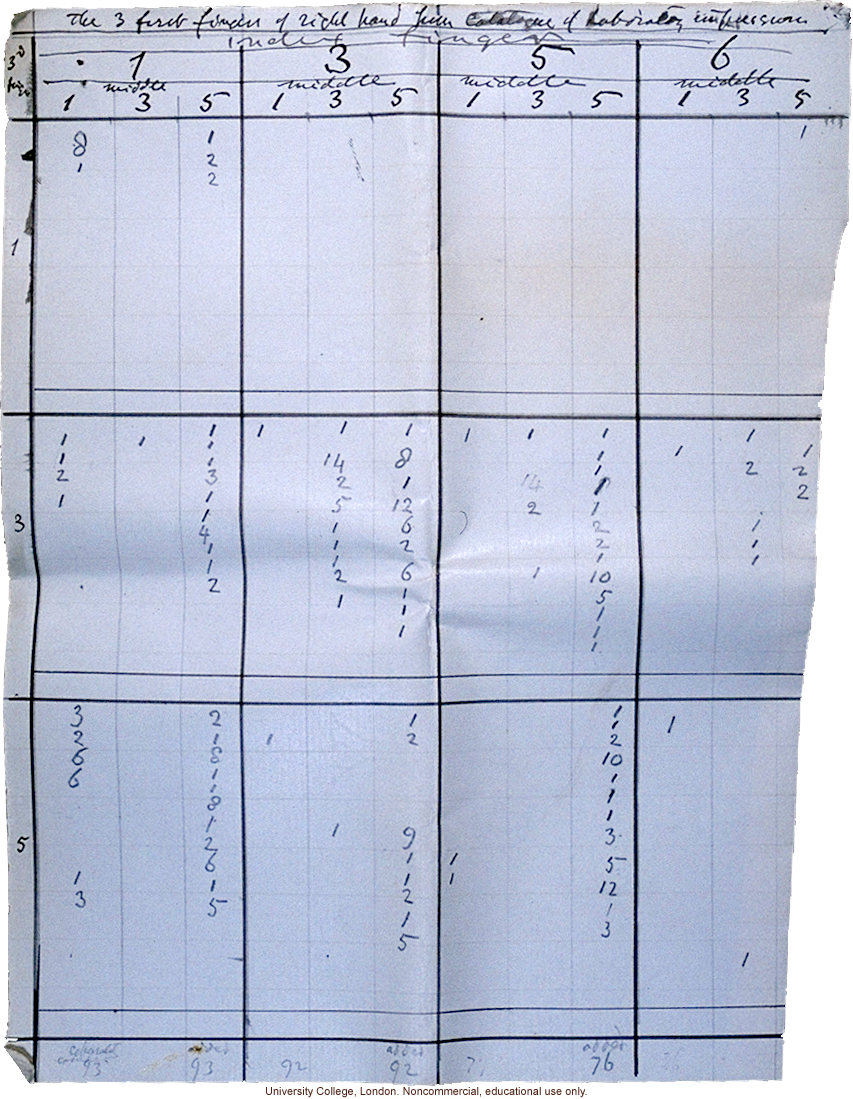 The 3 first fingers of right hand from Catalogue of Laboratory impressions
index finger
3d 1 3 5 6
middle middle middle middle
1 3 5 1 3 5 1 3 5 1 3 5
8 1 1
1 2
2
1
1 1 1 1 1 1 1 1 1 1
1 1 14 8 1 1 1
2 3 2 1 14 1 2 2
1 1 5 12 2 1 2
3 1 1 6 2 1
4 1 2 2 1
1 1 1 1
1 2 6 1 10
2 1 1 5
1 1
1 1
1
3 2 1 1 1
2 1 1 2 1
6 8 2
6 1 10
1 1
8 1
1 1
5 2 1 9 3
6 1 1 5
1 1 1 1 12
3 5 2 1
1 3
5 1
added added
93 93 92 92 76
University College, London. Noncommercial, educational use only.